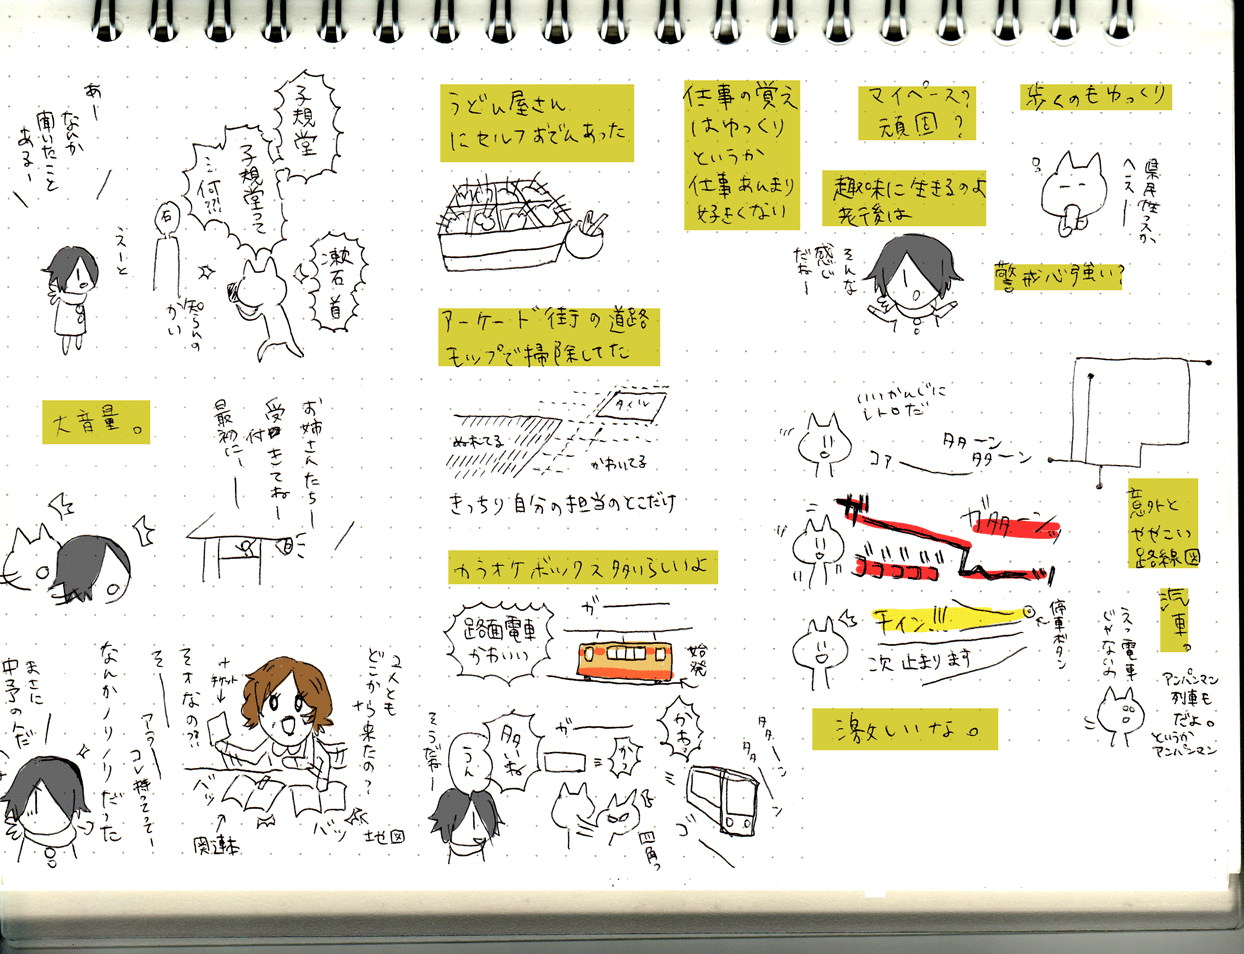 あー
なんか
聞いたこと
あるー
えーと
子規堂
子規堂って
…何?!!
石
漱石 首
知らんの
かい
大音量。
お姉さんたちー
受付きてねー
最初にー
まさに
中予の人だ
なんかノリノリだった
そー
そオなの??!
アラー
コレ持ってってー
チケット
2人とも
どこから来たの?
バッ
バッ
関連本
地図
うどん屋さん
にセルフおでんあった
アーケード街の道路
モップで掃除してた
タイル
ぬれてる
かわいてる
きっちり自分の担当のとこだけ
カラオケボックス多いらしいよ
路面電車
かわいい
ガ――
始発
そうだねー
うん
多いね
ガ――
かっ
かわっ
四角っ
タターン
タタ
ゴ
仕事の覚え
はゆっくり
というか
仕事あんまり
好きくない
マイペース?
頑固?
趣味に生きるのよ
老後は
そんな
感じ
だねー
歩くのもゆっくり
県民性っスか
へースー
警戒心強い?
いいかんじに
レトロだ
コァ――
タターン
タターン
ガタターンッ
意外と
ややこい
路線図
チイン!!!
停車ボタン
次 止まります
激しいな。
汽車。
えっ電車
じゃないの
アンパンマン
列車も
だよ。
というか
アンパンマン